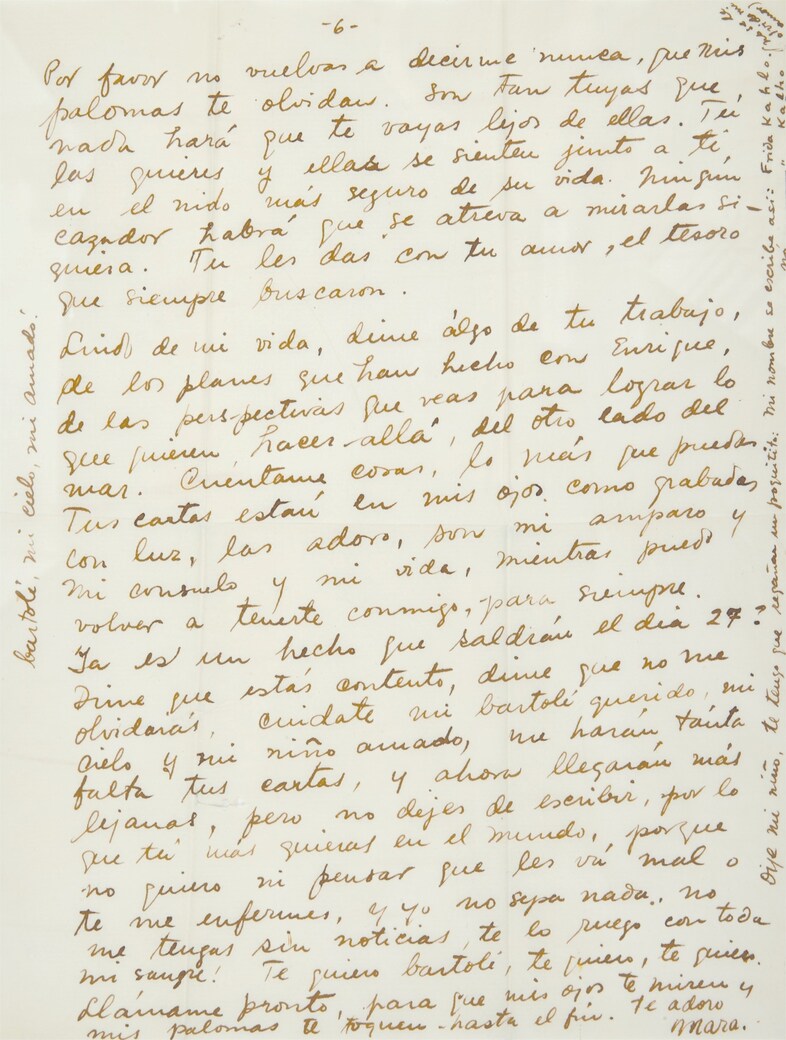 -6-
Por favor no vuelvas a decirme nunca, que mis
palomas te olvidan. Son tan tuyas que,
nada hará que te vayas lejos de ellas. Tú
las quieres y ellas se sienten junto a ti
en el nido más seguro de su vida. Ningún
cazador habrá que se atreva a mirarlas si-
quiera. Tu les das con tu amor, el tesoro
que siempre buscaron.
Lindo de mi vida, dime álgo de tu trabajo,
de los planes que han hecho con Enrique,
de las perspectivas que veas para lograr lo
que quieren hacer allá, del otro lado del
mar. Cuéntame cosas, lo más que puedas
Tus cartas están en mis ojos como grabadas
con luz, las adoro, son mi amparo y
mi consuelo y mi vida, mientras puedo
volver a tenerte conmigo, para siempre.
Ya es un hecho que saldrán el dia 27?
Dime que estás contento, dime que no me
olvidarás, cuidate mi bartolé querido, mi
cielo y mi niño amado, me harán tánta
falta tus cartas, y ahora llegarán más
lejanas, pero no dejes de escribir, por lo
que tú más quieras en el mundo, porque
no quiero ni pensar que les vá mal o
te me enfermes, y yo no sepa nada., no
me tengas sin noticias, te lo ruego con toda
mi sangre! Te quiero bartolé, te quiero, te quiero.
Llámame pronto, para que mis ojos te miren y
mis palomas te toquen hasta el fin. Te adoro
Mara.
bartolé, mi cielo, mi amado!
Oye mi niño, te tengo que regañar un poquitito: mi nombre se escribe asi: Frida Kahlo.
no " Kalho